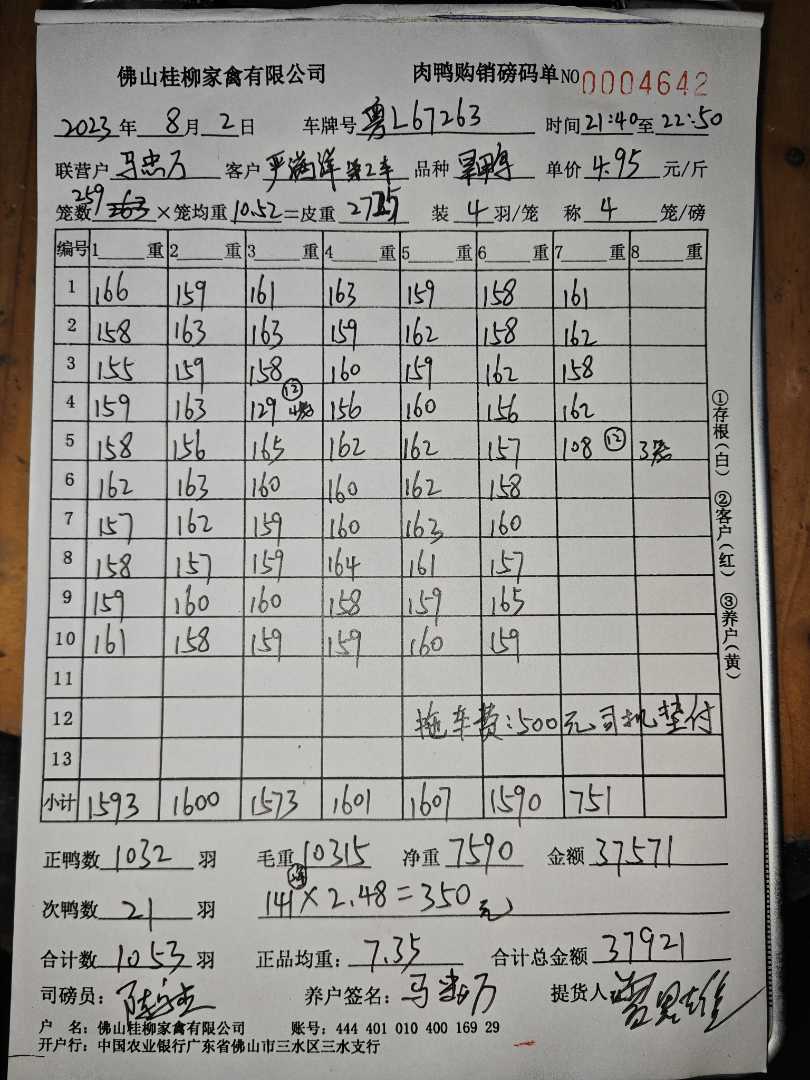 佛山桂柳家禽有限公司 肉鸭购销磅码单 NO 0004642
2023年 8月2日 车牌号 粤L67263 时间21:40至22:50
联营户 马忠万 客户 严满洋 第2车 品种 单价 4.95 元/斤
259
笼数 263 ×笼均重10.52=皮重 2725 装 4 羽/笼 称 4 笼/磅
编号 1 重 2 重 3 重 4 重 5 重 6 重 7 重 8 重
1 166 159 161 163 159 158 161
2 158 163 163 159 162 158 162
3 155 159 158 160 159 162 158
4 159 163 129 ⑫ 4笼 156 160 156 162
5 158 156 165 162 162 157 108 ⑫ 3笼
6 162 163 160 160 162 158
7 157 162 159 160 163 160
8 158 157 159 164 161 157
9 159 160 160 158 159 165
10 161 158 159 159 160 159
11
12 拖车费:500元司机垫付
13
小计 1593 1600 1573 1601 1607 1590 751
正鸭数 1032 羽 毛重 10315 净重 7590 金额 37571
次鸭数 21 羽 141×2.48=350元
合计数 1053 羽 正品均重: 7.35 合计总金额 37921
司磅员: 养户签名: 马忠万 提货人
户 名: 佛山桂柳家禽有限公司 账号: 444 401 010 400 169 29
开户行: 中国农业银行广东省佛山市三水区三水支行
①存根(白) ②客户(红) ③养户(黄)